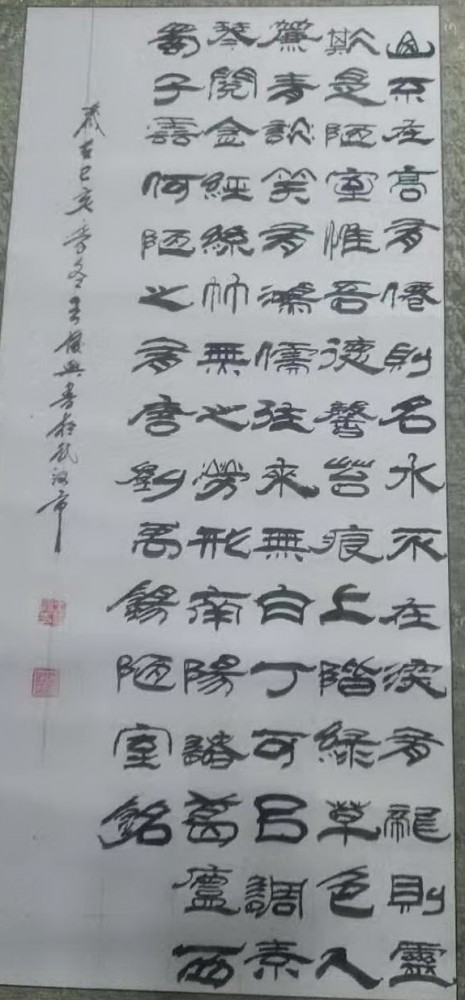 山不在高有僊則名水不在深有龍則靈
斯是陋室惟吾德馨苔痕上階綠草色入
簾青談笑有鴻儒往來無白丁可以調素
琴閱金經絲竹無之勞形南陽諸葛廬西
蜀子雲何陋之有唐劉禹錫陋室銘
歲在己亥季冬王興書於武漢市